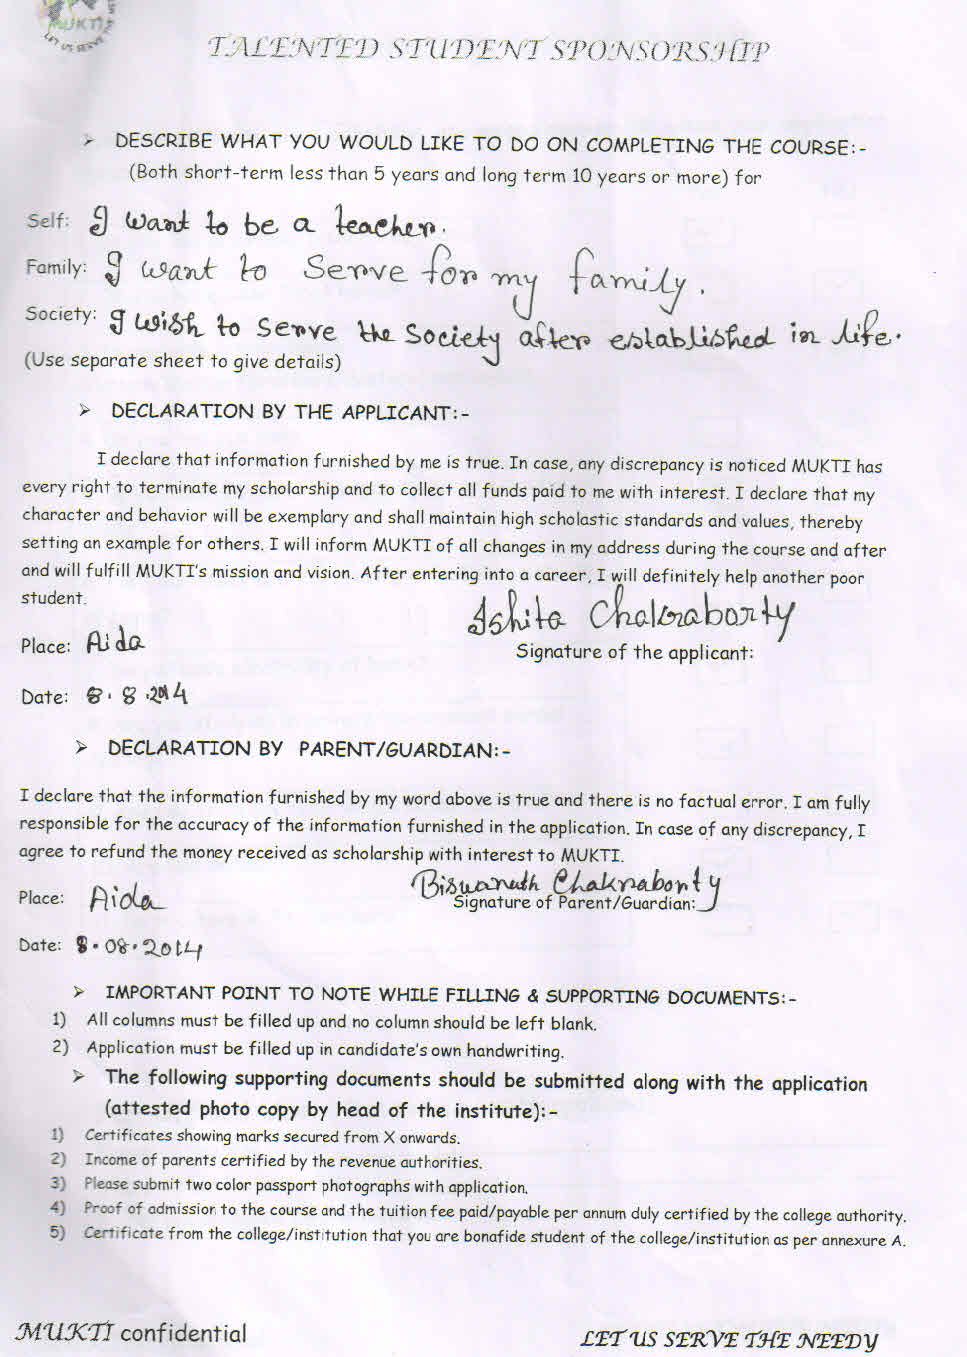 MUKTI
LET US SERVE THE
TALENTED STUDENT SPONSORSHIP
➢ DESCRIBE WHAT YOU WOULD LIKE TO DO ON COMPLETING THE COURSE:-
(Both short-term less than 5 years and long term 10 years or more) for
Self: I want to be a teacher.
Family: I want to serve for my family.
Society: I wish to serve the society after established in life.
(Use separate sheet to give details)
➢ DECLARATION BY THE APPLICANT:-
I declare that information furnished by me is true. In case, any discrepancy is noticed MUKTI has
every right to terminate my scholarship and to collect all funds paid to me with interest. I declare that my
character and behavior will be exemplary and shall maintain high scholastic standards and values, thereby
setting an example for others. I will inform MUKTI of all changes in my address during the course and after
and will fulfill MUKTI's mission and vision. After entering into a career, I will definitely help another poor
student.
Ishita Chakraborty
Place: Aida
Signature of the applicant:
Date: 8.8.2014
➢ DECLARATION BY PARENT/GUARDIAN:-
I declare that the information furnished by my word above is true and there is no factual error. I am fully
responsible for the accuracy of the information furnished in the application. In case of any discrepancy, I
agree to refund the money received as scholarship with interest to MUKTI.
Biswanath Chakraborty
Place: Aida
Signature of Parent/Guardian:
Date: 8.08.2014
➢ IMPORTANT POINT TO NOTE WHILE FILLING & SUPPORTING DOCUMENTS:-
1) All columns must be filled up and no column should be left blank.
2) Application must be filled up in candidate's own handwriting.
➢ The following supporting documents should be submitted along with the application
(attested photo copy by head of the institute):-
1) Certificates showing marks secured from X onwards.
2) Income of parents certified by the revenue authorities.
3) Please submit two color passport photographs with application.
4) Proof of admission to the course and the tuition fee paid/payable per annum duly certified by the college authority.
5) Certificate from the college/institution that you are bonafide student of the college/institution as per annexure A.
MUKTI confidential
LET US SERVE THE NEEDY